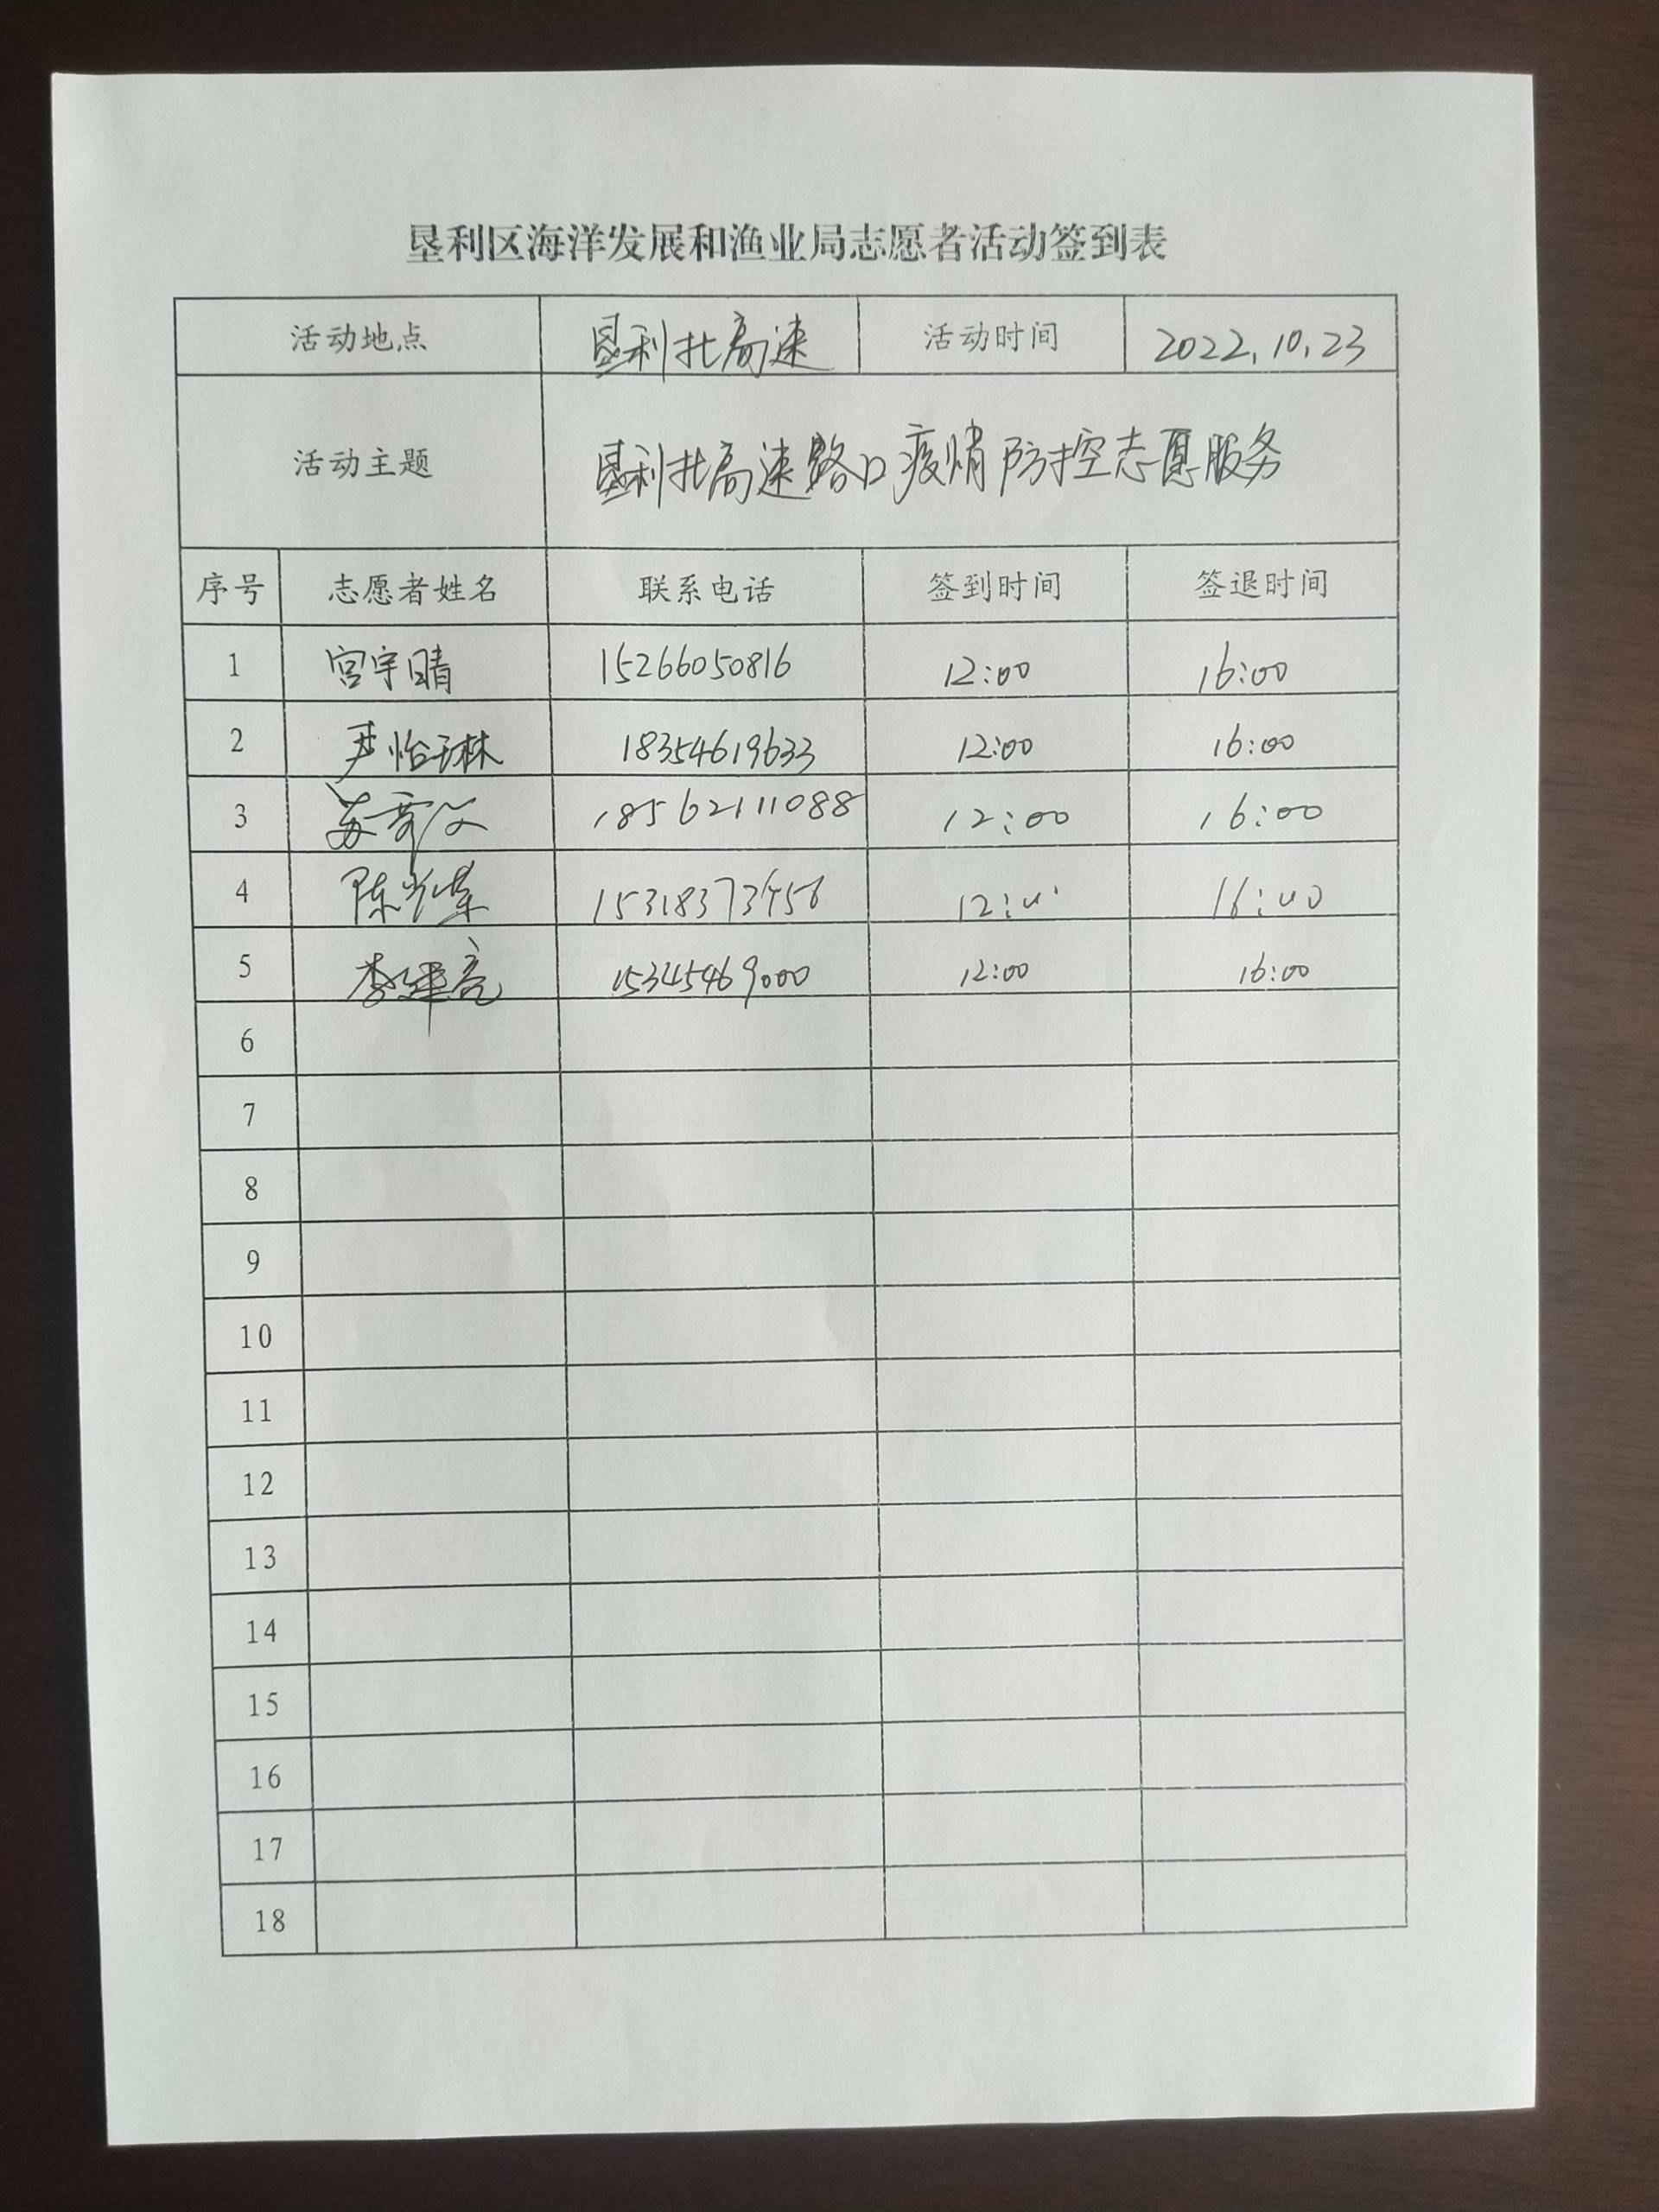 垦利区海洋发展和渔业局志愿者活动签到表
活动地点 垦利北高速 活动时间 2022.10.23
活动主题 垦利北高速路口疫情防控志愿服务
序号 志愿者姓名 联系电话 签到时间 签退时间
1 宫宇晴 15266050816 12:00 16:00
2 尹怡琳 18354619633 12:00 16:00
3 18562111088 12:00 16:00
4 16:00
5 15345469000 12:00 16:00
6
7
8
9
10
11
12
13
14
15
16
17
18